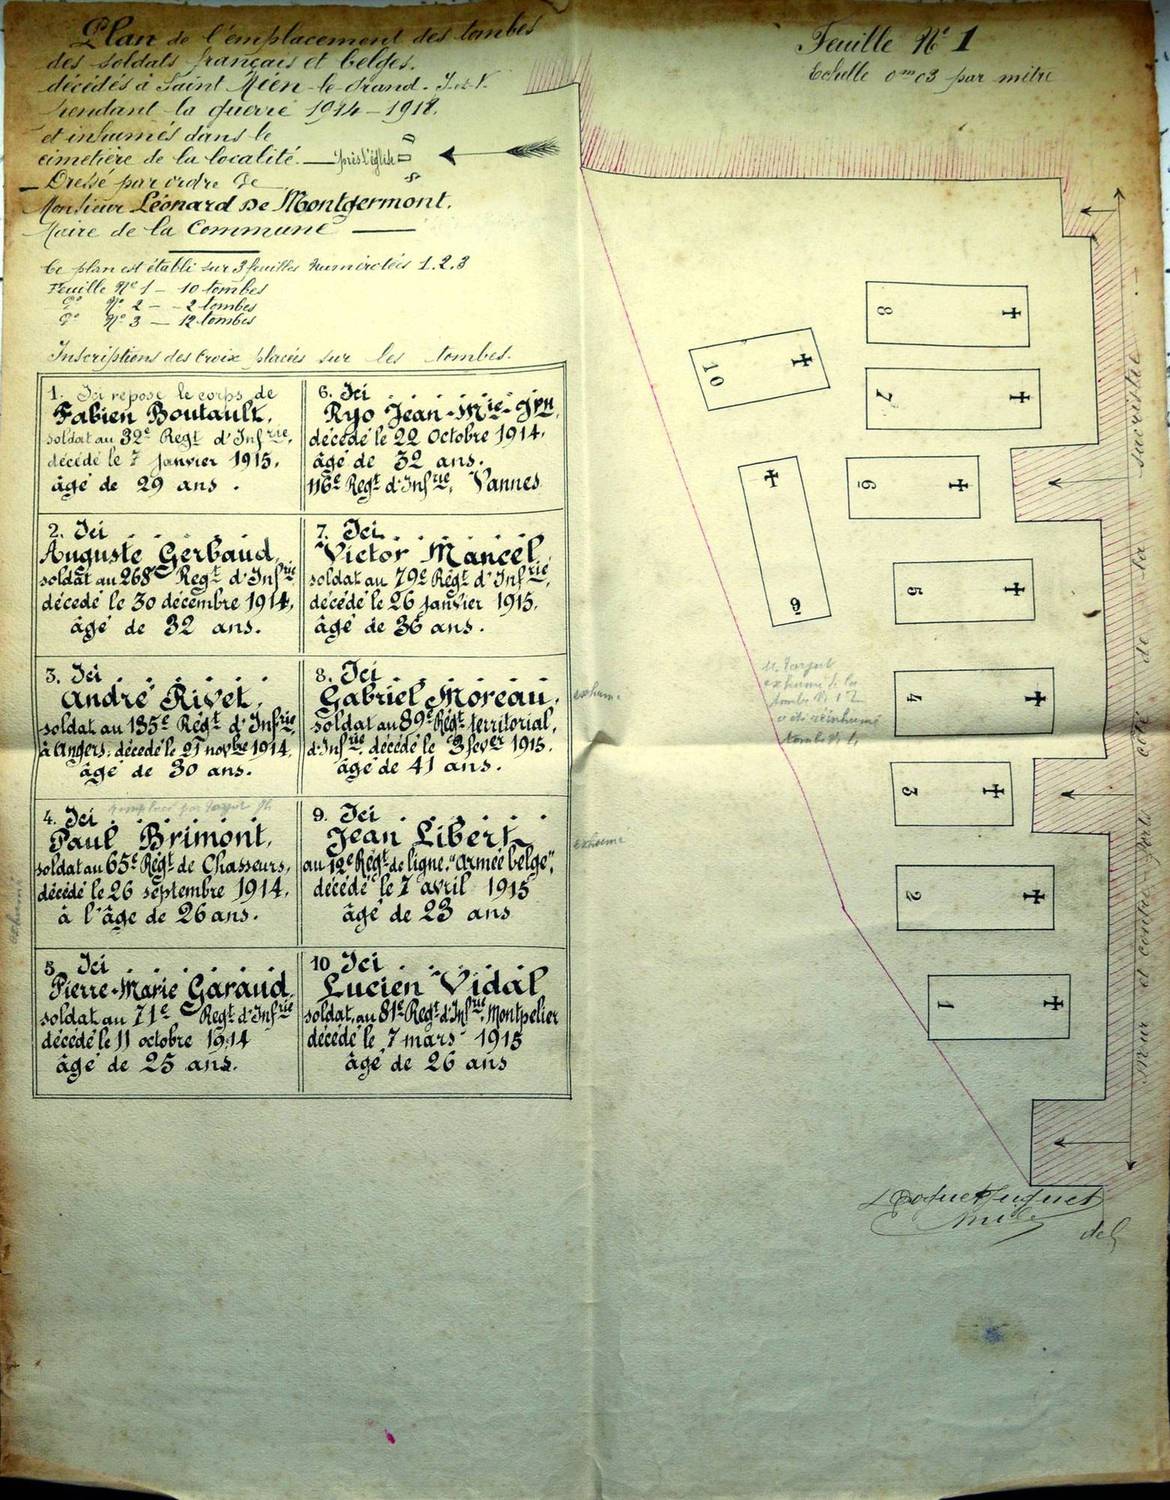 Plan de l'emplacement des tombes
des soldats français et belges.
décédés à Saint Méen-le-Grand. I.et.V.
pendant la guerre 1914-1918.
et inhumés dans le
cimetière de la localité. — près l'église
Dressé par ordre de
Monsieur Léonard De Montgermont.
Maire de la Commune
Ce plan est établi sur 3 feuilles numérotées 1.2.3
Feuille N° 1 — 10 tombes
d° N° 2 — 2 tombes
d° N° 3 — 12 tombes
Inscriptions des Croix placées sur les tombes.
1. Ici repose le corps de
Fabien Boutault,
soldat au 32e Regt d'Infrie,
décédé le 7 Janvier 1915.
âgé de 29 ans.
2. Ici . . . . .
Auguste Gerbaud,
soldat au 268e Regt d'Infrie
décédé le 30 décembre 1914,
âgé de 32 ans.
3. Ici . . . . .
André Rivet,
soldat au 135e Régt d'Infrie
à Angers, décédé le 21 novbre 1914.
âgé de 30 ans.
4. Ici remplacé par
Paul Brimont,
soldat au 65e Régt de Chasseurs,
décédé le 26 septembre 1914.
à l'âge de 26 ans.
5 Ici . . . . .
Pierre-Marie Garaud,
soldat au 71e Regt d'Infrie
décédé le 11 octobre 1914
âgé de 25 ans.
6. Ici . . . . .
Ryo Jean-Mie-Jph,
décédé le 22 Octobre 1914,
âgé de 32 ans.
116e Regt d'Infrie, Vannes
7. Ici . . . . .
Victor Mancel,
soldat au 79e Régt d'Infrie,
décédé le 26 janvier 1915.
âgé de 36 ans.
8. Ici . . . . .
Gabriel Moreau,
soldat au 89e Régt territorial,
d'Infrie décédé le 3 fever 1915.
âgé de 41 ans.
9. Ici . . . . .
Jean Libert,
au 12e Régt de ligne. "Armée belge",
décédé le 7 avril 1915
âgé de 23 ans
10 Ici . . . . .
Lucien Vidal
soldat au 81e Regt d'Infrie, Montpelier
décédé le 7 mars 1915
âgé de 26 ans
exhumé
exhumé
exhumé
Feuille N° 1
Echelle 0m03 par mètre
8
10
7
6
9
5
4
exhumé de la
tombe N° 12
a été réinhumé
tombe N° 4
3
2
1
Mur et contre-forts côté de la sacristie
del